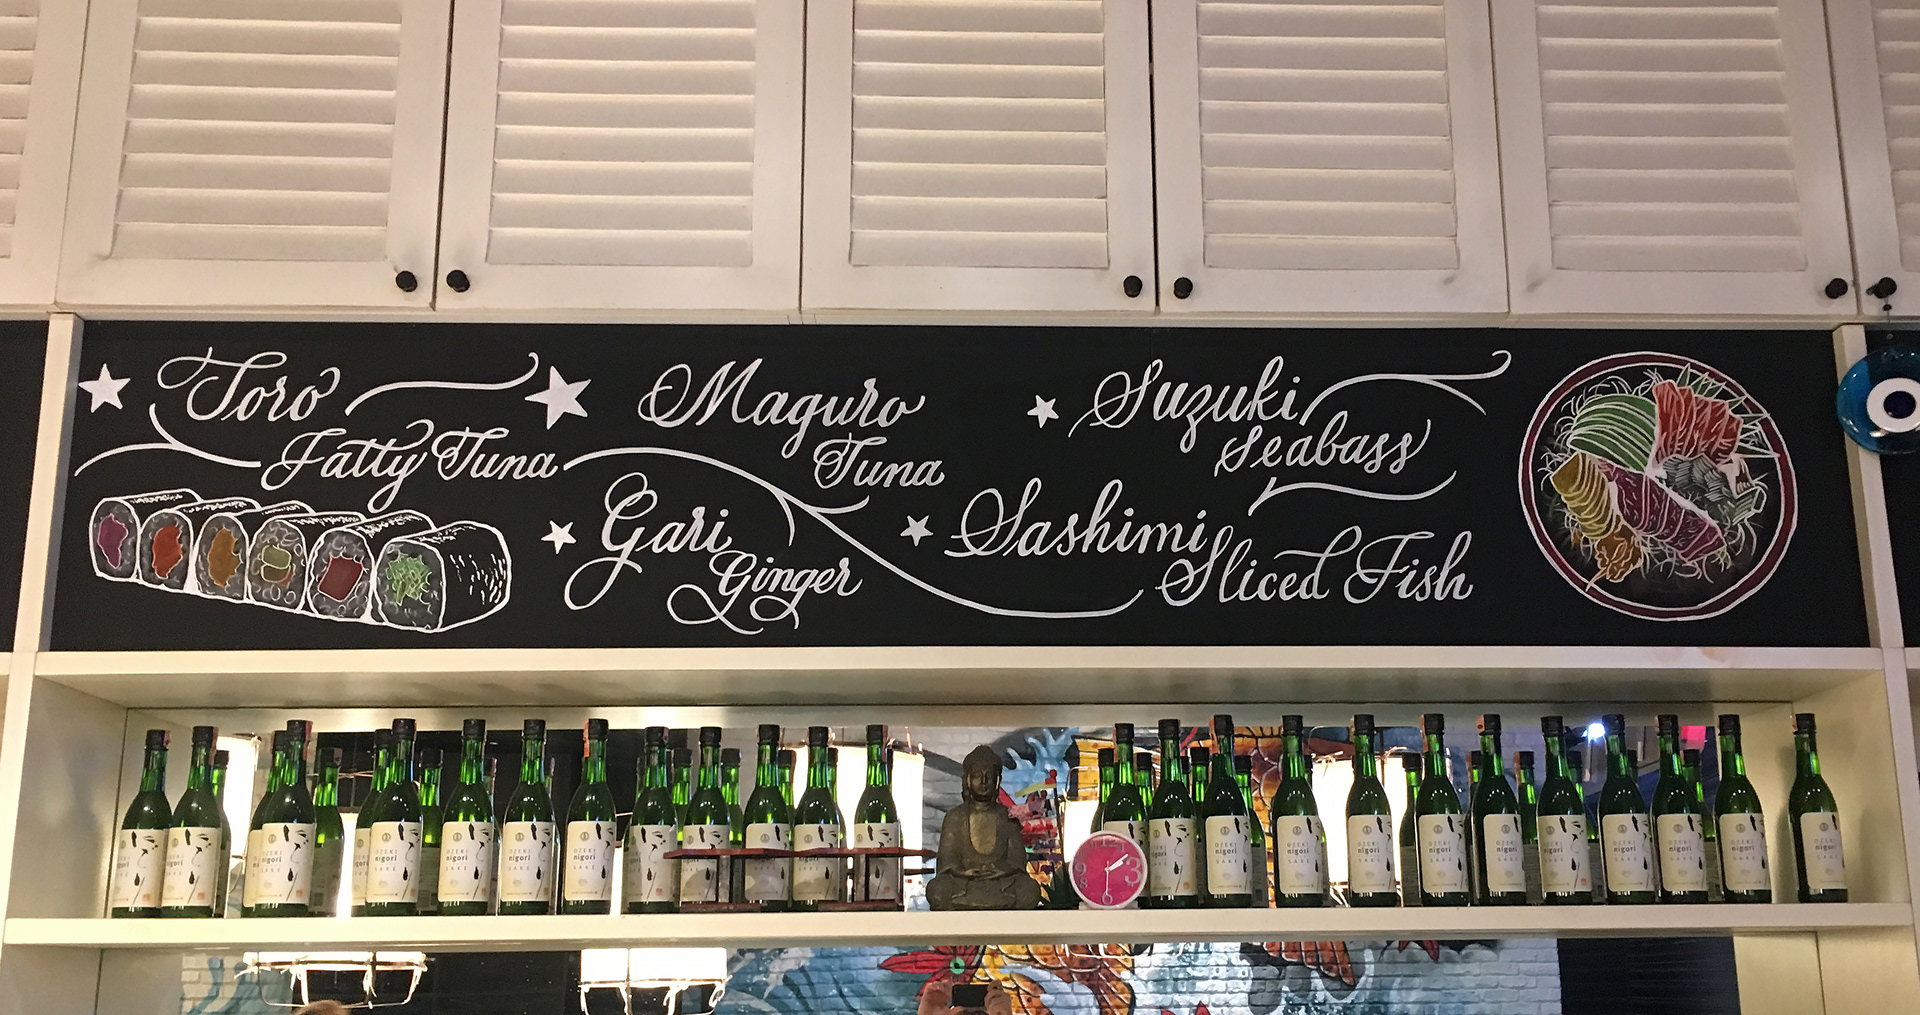 Toro
Fatty Tuna
Maguro
Tuna
Suzuki
Seabass
Gari
Ginger
Sashimi
Sliced Fish
OZEKI
nigori
SAKE